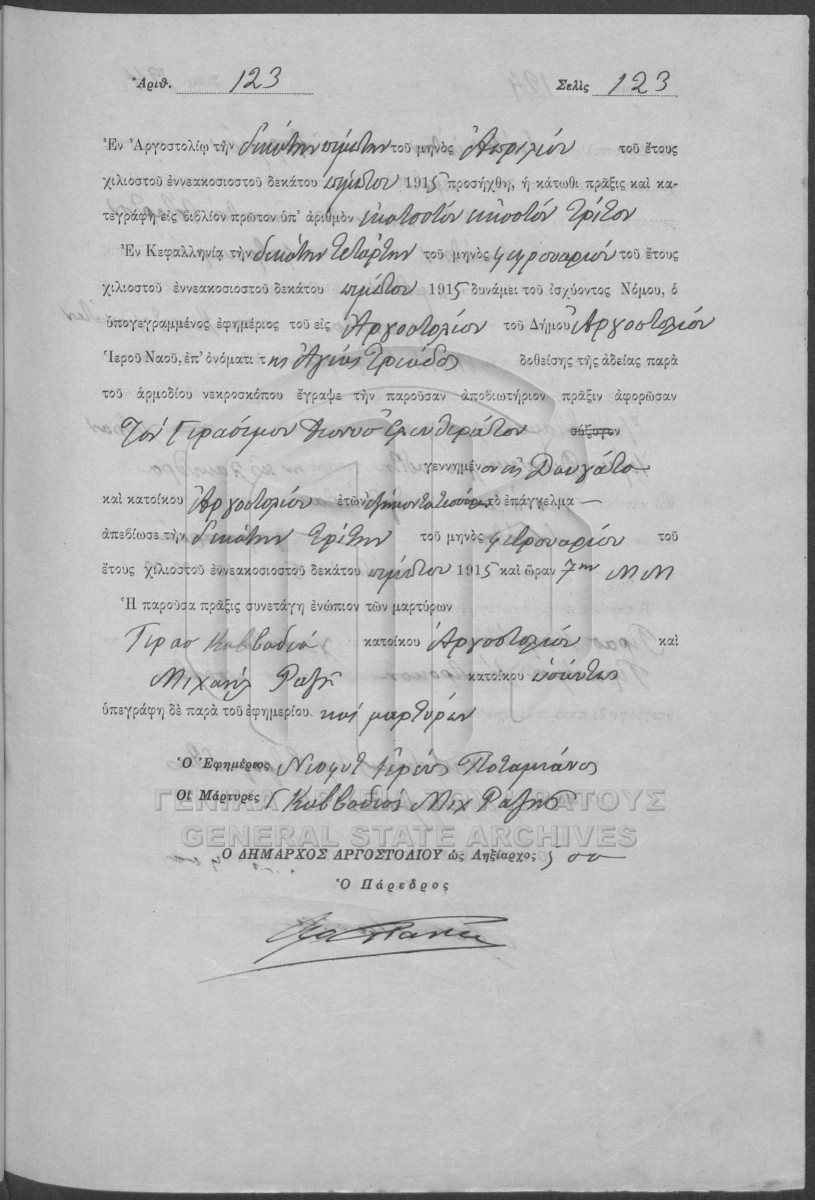 Ἀριθ. 123 Σελὶς 123
Ἐν Ἀργοστολίῳ τὴν δεκάτην πέμπτην τοῦ μηνὸς Ἀπριλίου τοῦ ἔτους
χιλιοστοῦ ἐννεακοσιοστοῦ δεκάτου πέμπτου 1915 προσήχθη, ἡ κάτωθι πρᾶξις καὶ κα-
τεγράφη εἰς βιβλίον πρῶτον ὑπ' ἀριθμὸν ἑκατοστὸν εἰκοστὸν τρίτον
Ἐν Κεφαλληνίᾳ τὴν δεκάτην τετάρτην τοῦ μηνὸς Φεβρουαρίου τοῦ ἔτους
χιλιοστοῦ ἐννεακοσιοστοῦ δεκάτου πέμπτου 1915 δυνάμει τοῦ ἰσχύοντος Νόμου, ὁ
ὑπογεγραμμένος ἐφημέριος τοῦ εἰς Ἀργοστόλιον τοῦ Δήμου Ἀργοστολίου
Ἱεροῦ Ναοῦ, ἐπ' ὀνόματι τῆς Ἁγίας Τριάδος δοθείσης τῆς ἀδείας παρὰ
τοῦ ἁρμοδίου νεκροσκόπου ἔγραψε τὴν παροῦσαν ἀποβιωτήριον πρᾶξιν ἀφορῶσαν
Τὸν Γεράσιμον Διονυσ Ελευθεράτον σύζυγον
γεννημένον εἰς Δαυγάτα
καὶ κατοίκου Ἀργοστολίου ἐτῶν ἑξήκοντα τεσσάρων τὸ ἐπάγγελμα —
ἀπεβίωσε τὴν δεκάτην τρίτην τοῦ μηνὸς Φεβρουαρίου τοῦ
ἔτους χιλιοστοῦ ἐννεακοσιοστοῦ δεκάτου πέμπτου 1915 καὶ ὥραν 7ην Μ Μ
Ἡ παροῦσα πρᾶξις συνετάγη ἐνώπιον τῶν μαρτύρων
Γερασ Καββαδία κατοίκου Ἀργοστολίου καὶ
Μιχαὴλ Ραζῆ κατοίκου ὡσαύτως
ὑπεγράφη δὲ παρὰ τοῦ ἐφημερίου καὶ μαρτύρων
Ὁ Ἐφημέριος Νεοφυτ Ιερεὺς Ποταμιάνος
Οἱ Μάρτυρες Γ Καββαδίας Μιχ Ραζῆς
ΓΕΝΙΚΑ ΑΡΧΕΙΑ ΤΟΥ ΚΡΑΤΟΥΣ
GENERAL STATE ARCHIVES
Ο ΔΗΜΑΡΧΟΣ ΑΡΓΟΣΤΟΛΙΟΥ ὡς Ληξίαρχος
Ὁ Πάρεδρος